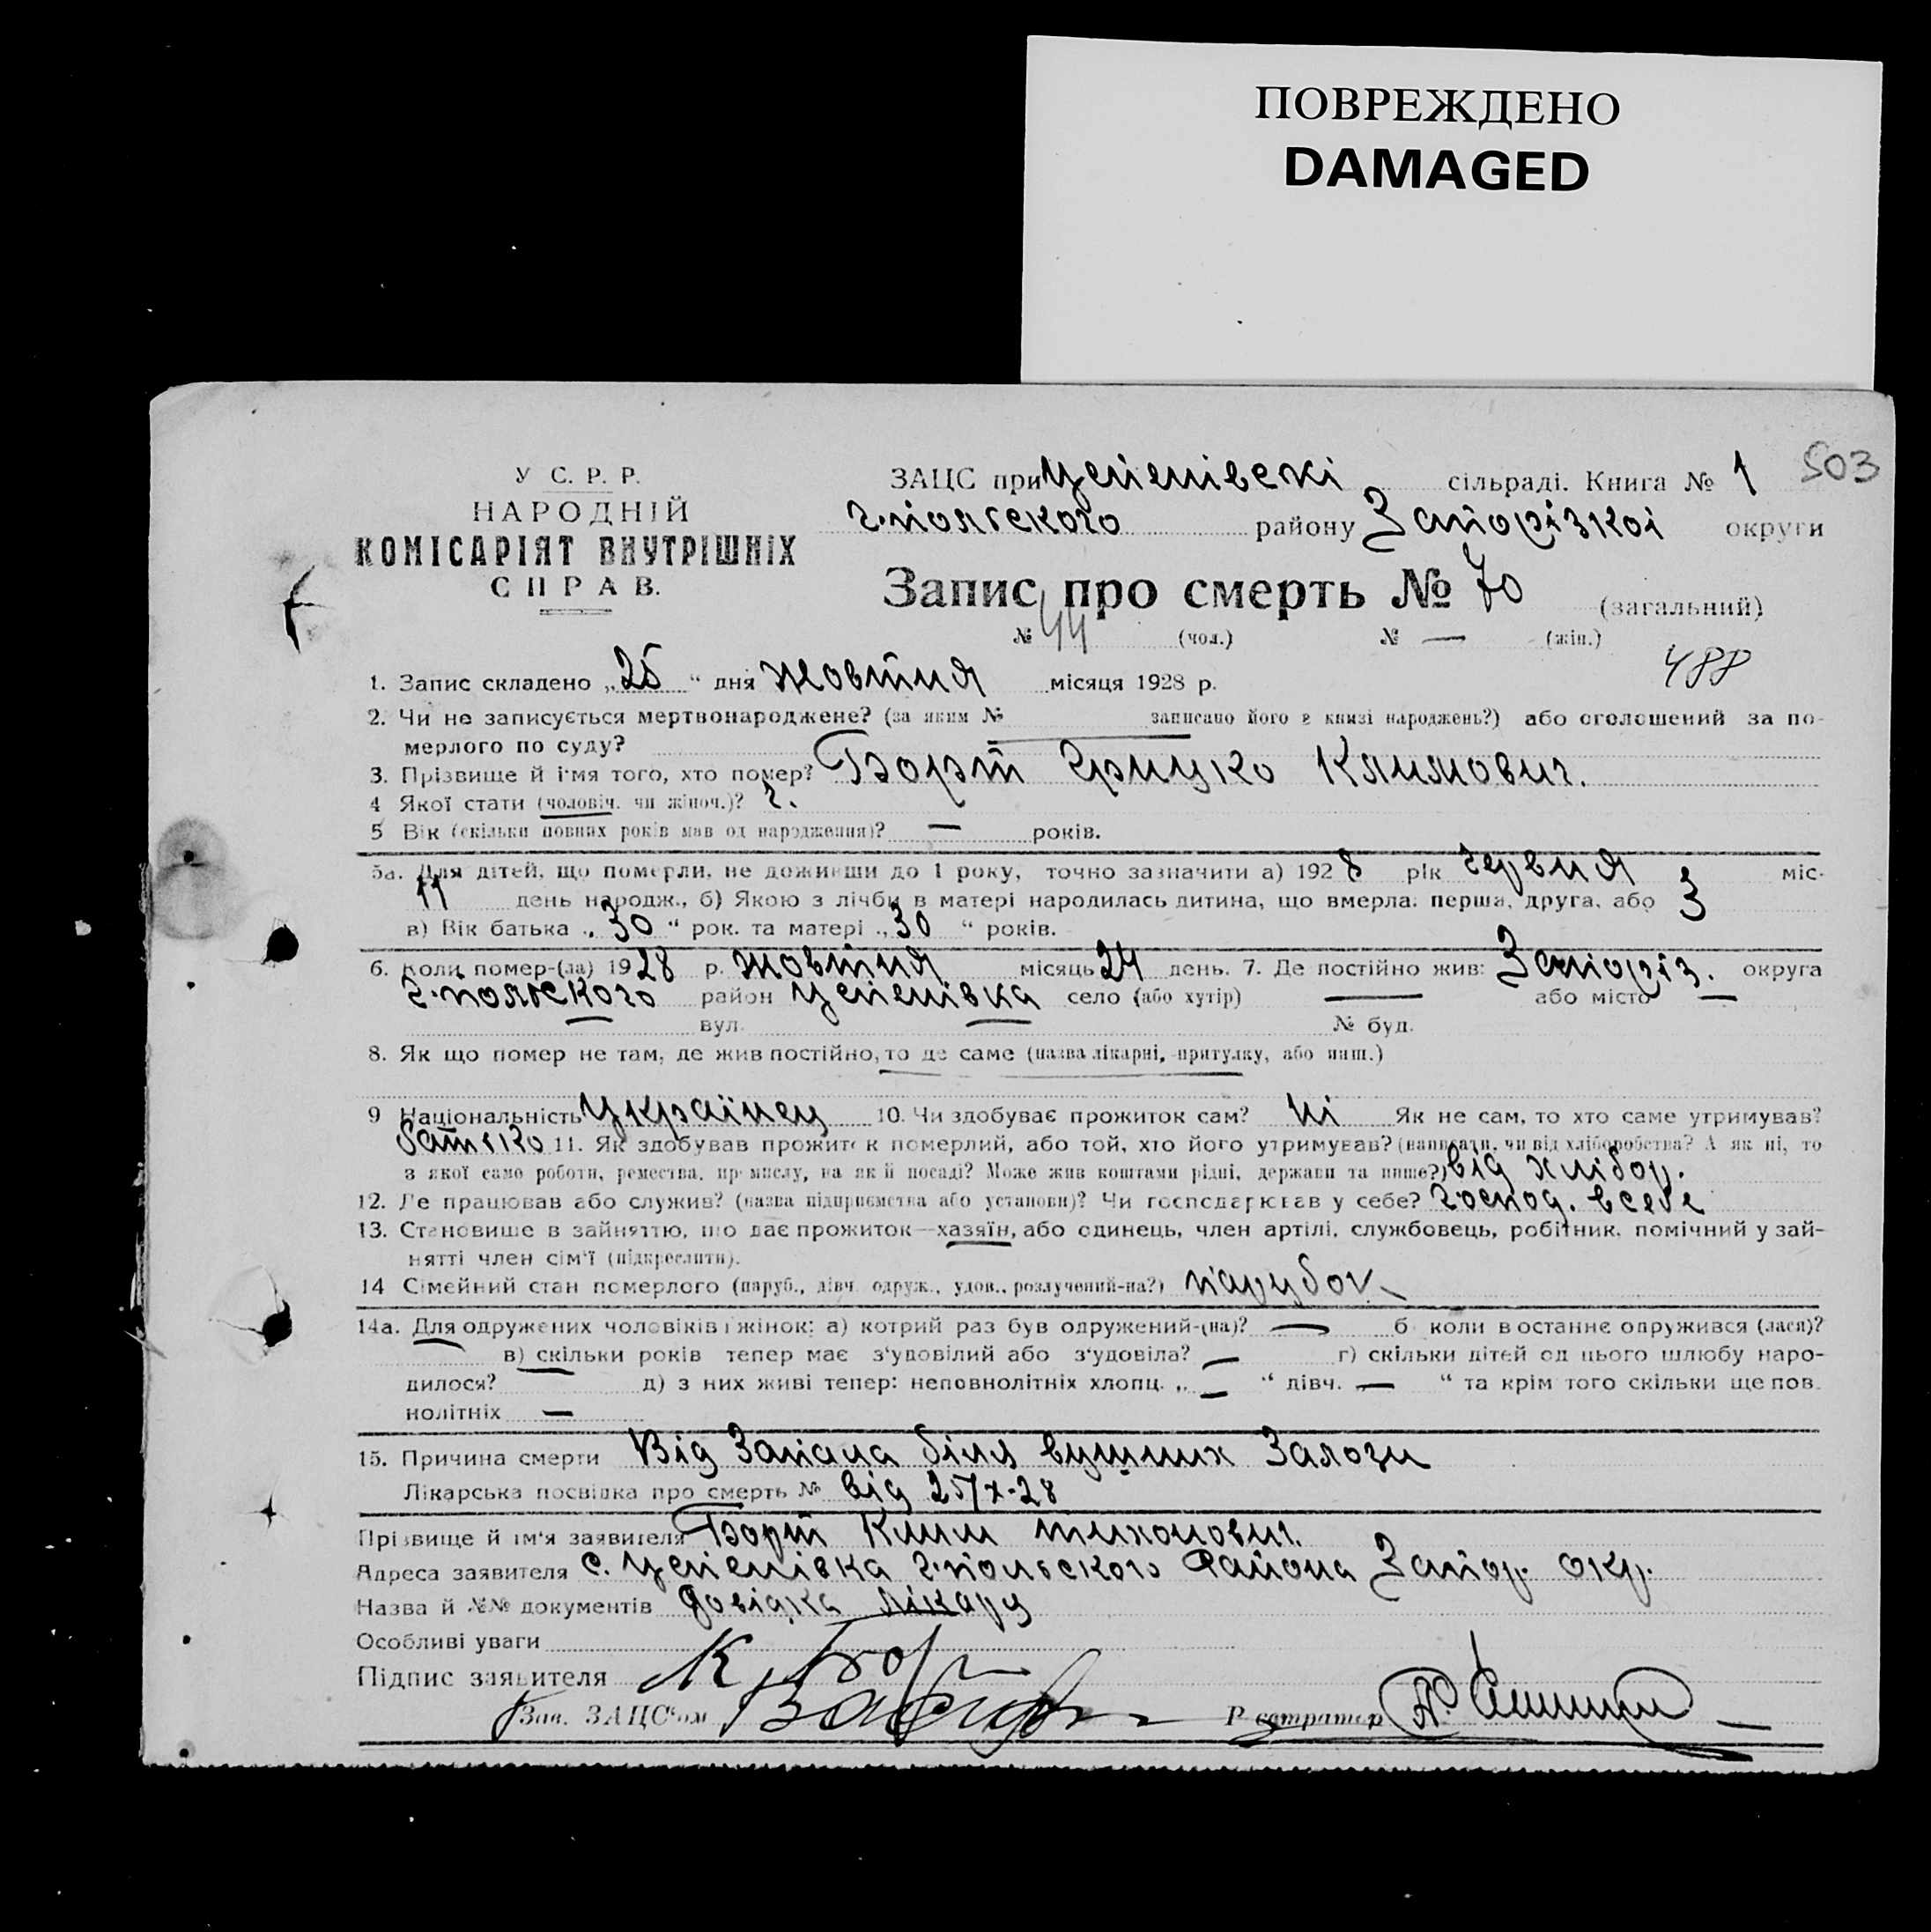 ПОВРЕЖДЕНО
DAMAGED
У С. Р. Р.
НАРОДНІЙ
КОМІСАРІЯТ ВНУТРІШНІХ
СПРАВ.
ЗАЦС при Цепенівскі сільраді. Книга № 1 503
г-польского району Запорізкоі округи
Запис про смерть № 70 (загальний)
№ 44 (чол.) № — (жін.)
488
1. Запис складено „25“ дня жовтня місяця 1928 р.
2. Чи не записується мертвонароджене? (за яким № записано його в книзі народжень?) або оголошений за по-
мерлого по суду?
3. Прізвище й ім'я того, хто помер? Борт Грицко Климович.
4 Якої стати (чоловіч. чи жіноч.)? ч.
5 Вік (скільки повних років мав од народження)? — років.
5а. Для дітей, що померли, не доживши до 1 року, точно зазначити а) 1928 рік червня міс-
11 день народж., б) Якою з лічби в матері народилась дитина, що вмерла: перша, друга, або 3
в) Вік батька „30“ рок. та матері „30“ років.
6. Коли помер-(ла) 1928 р. жовтня місяць 24 день. 7. Де постійно жив: Запоріз. округа
г-польского район Цепенівка село (або хутір) — або місто —
вул. № буд.
8. Як що помер не там, де жив постійно, то де саме (назва лікарні, притулку, або инш.)
9 Національність Украінец 10. Чи здобуває прожиток сам? Ні Як не сам, то хто саме утримував?
батько 11. Як здобував прожиток померлий, або той, хто його утримував? (написати, чи від хліборобства? А як ні, то
з якої саме роботи, ремества, промислу, на якій посаді? Може жив коштами рідні, держави та инше?) від хлібор.
12. Де працював або служив? (назва підприємства або установи)? Чи господарював у себе? Господ. в себе
13. Становище в зайняттю, що дає прожиток—хазяїн, або одинець, член артілі, службовець, робітник, помічний у зай-
нятті член сім'ї (підкреслити).
14 Сімейний стан померлого (паруб., дівч. одруж., удов., розлучений-на?) парубок
14а. Для одружених чоловіків і жінок: а) котрий раз був одружений-(на)? — б коли востаннє одружився (лася)?
в) скільки років тепер має з'удовілий або з'удовіла? — г) скільки дітей од цього шлюбу наро-
дилося? д) з них живі тепер: неповнолітніх хлопц. „—“ дівч. — “ та крім того скільки ще пов-
нолітніх —
15. Причина смерти Від Запала біля вушних Залози
Лікарська посвідка про смерть № від 25/X-28
Прізвище й ім'я заявителя Борт Клим тихонович.
Адреса заявителя с. Цепенівка г-польского Района Запор. окр.
Назва й №№ документів довідка лікару
Особливі уваги
Підпис заявителя К. Борт
Зав. ЗАЦС'ом Реєстратор